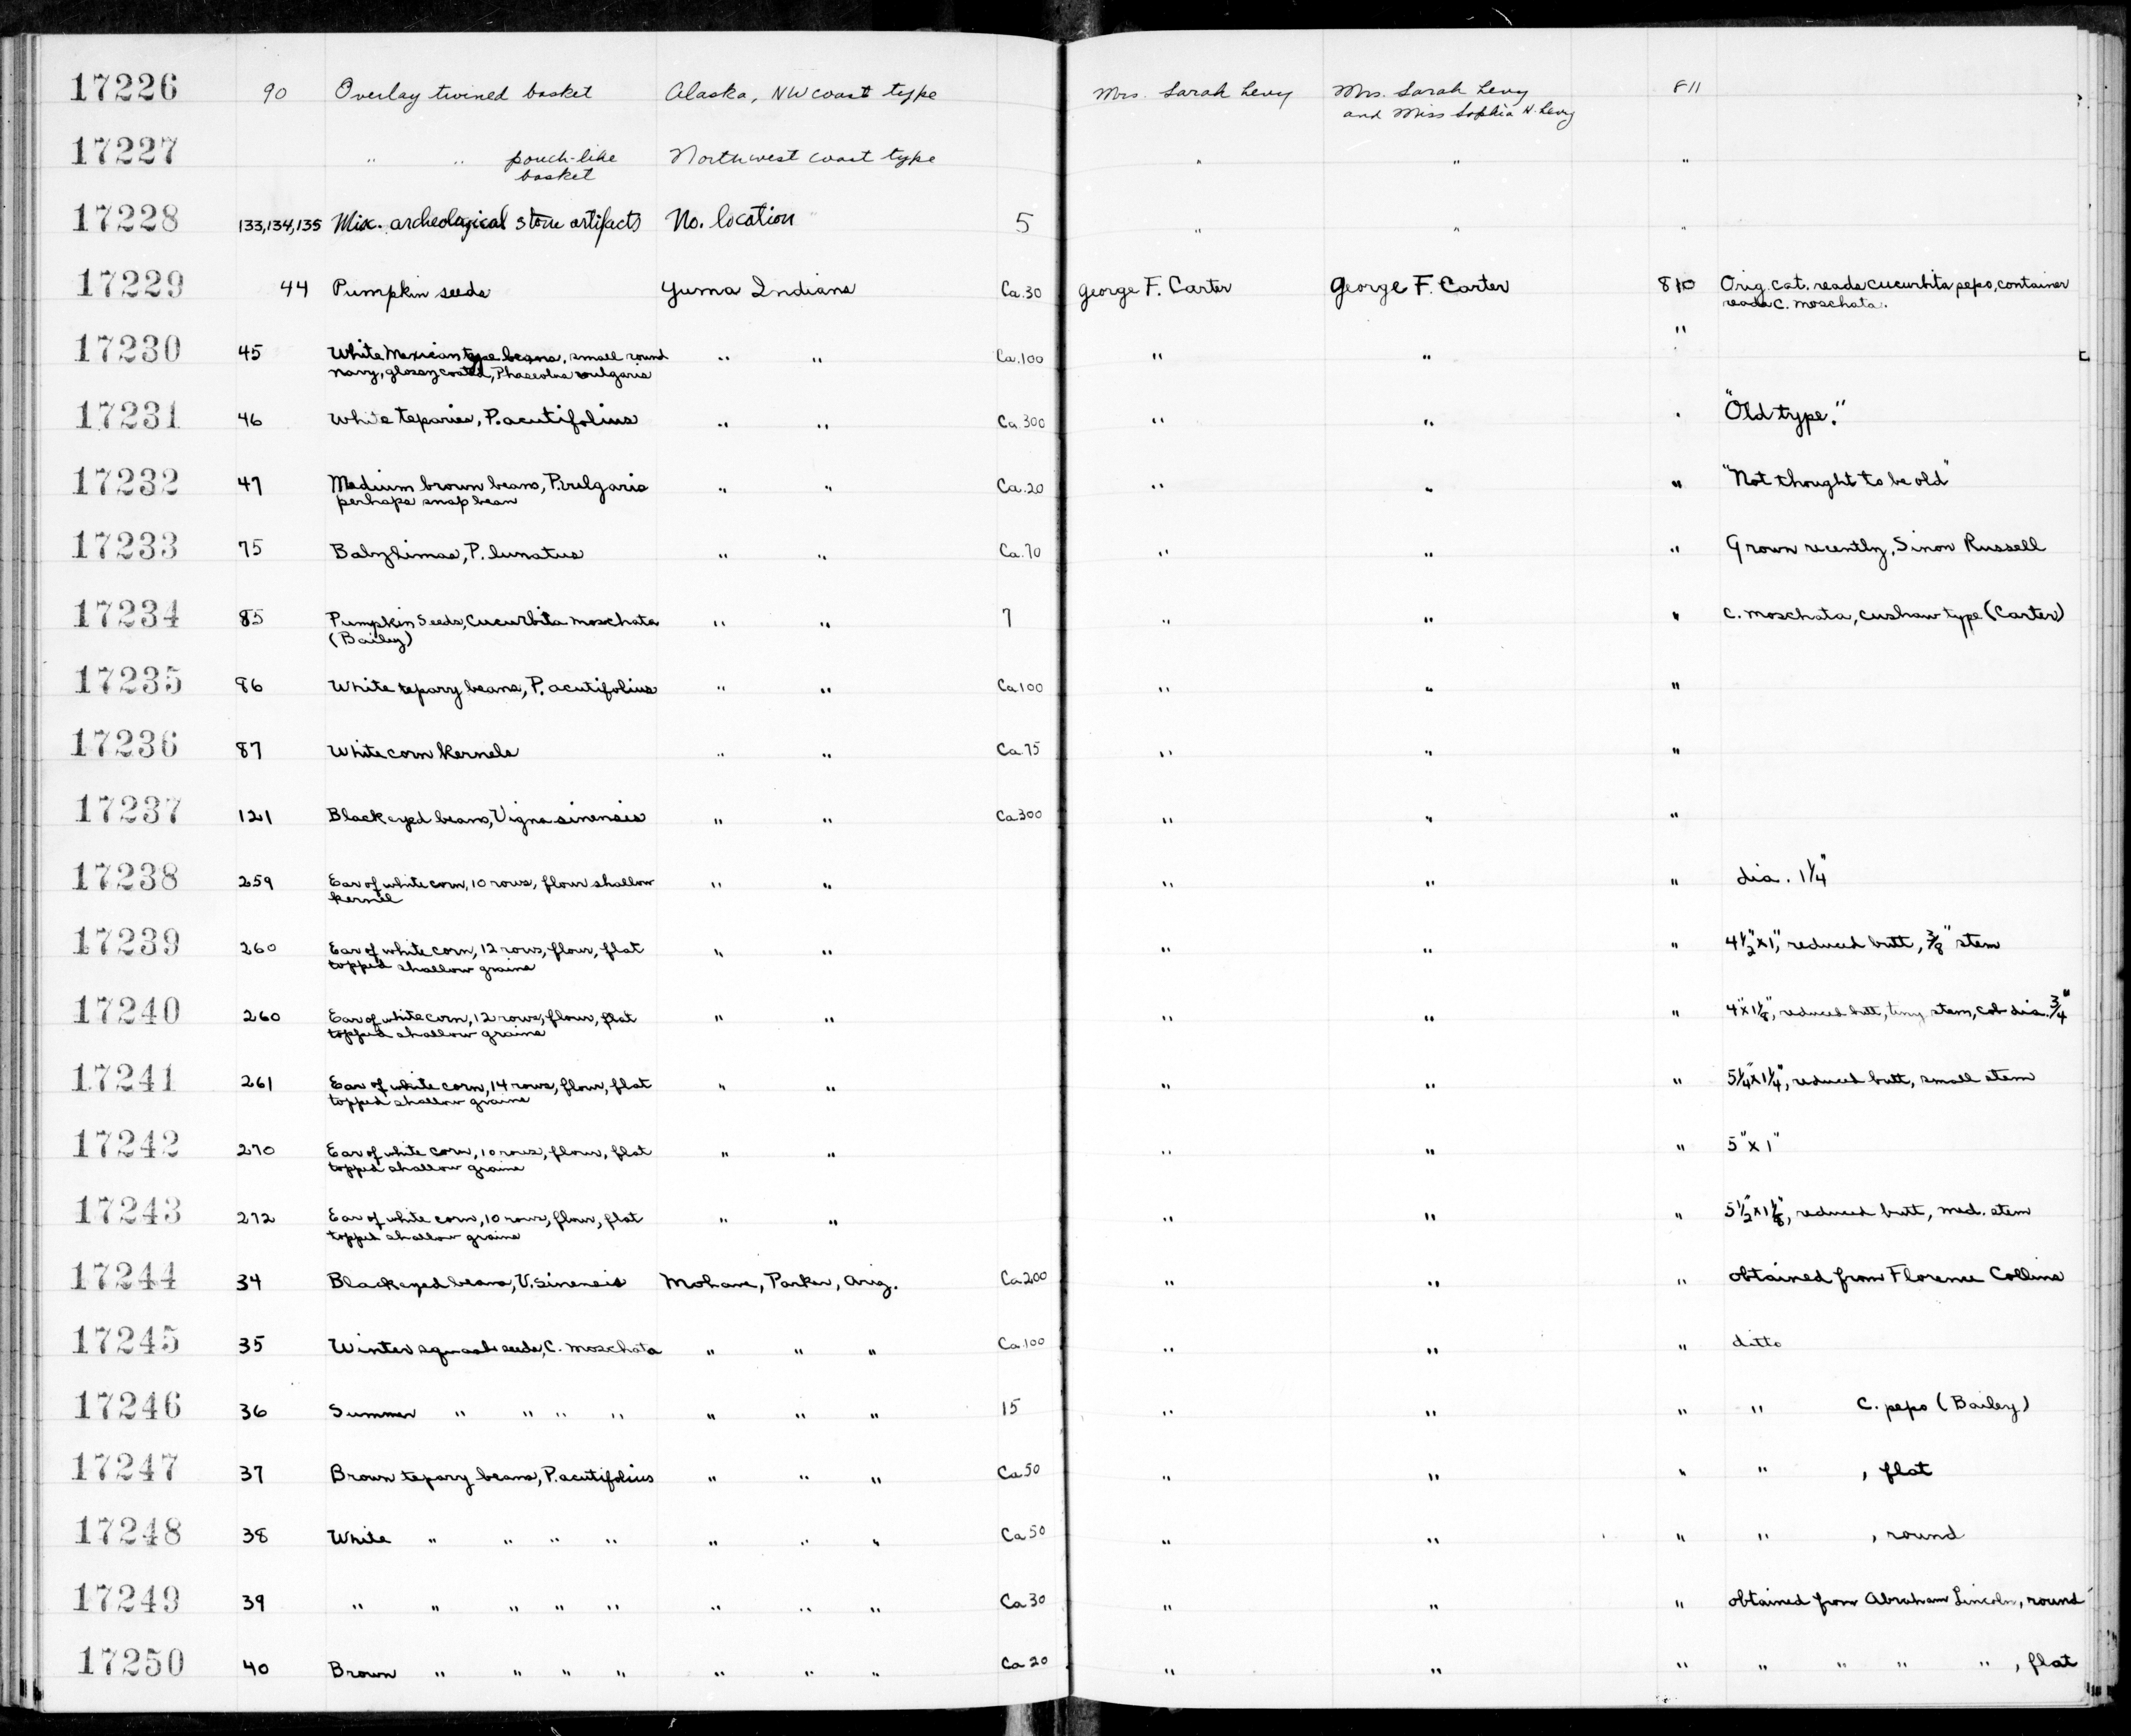 17226 90 Overlay twined basket Alaska, NW coast type Mrs. Sarah Levy Mrs. Sarah Levy 811
and Miss Sophia H. Levy
17227 " " pouch-like Northwest coast type " " "
basket
17228 133,134,135 Mix. archeological stone artifacts No. location 5 " " "
17229 44 Pumpkin seeds Yuma Indians Ca.30 George F. Carter George F. Carter 810 Orig. cat. reads cucurbita pepo, container
reads C. moschata.
17230 45 White Mexican type beans, small round " " Ca.100 " " "
navy, glossy coated, Phaseolus vulgaris
17231 46 White teparies, P. acutifolius " " Ca.300 " " " "Old type."
17232 47 Medium brown beans, P. vulgaris " " Ca.20 " " " "Not thought to be old"
perhaps snap bean
17233 75 Baby limas, P. lunatus " " Ca.70 " " " Grown recently, Sinon Russell
17234 85 Pumpkin Seeds, Cucurbita moschata " " 7 " " " C. moschata, cushaw type (Carter)
(Bailey)
17235 86 White tepary beans, P. acutifolius " " Ca.100 " " "
17236 87 White corn kernels " " Ca.75 " " "
17237 121 Black eyed beans, Vigna sinensis " " Ca.300 " " "
17238 259 Ear of white corn, 10 rows, flour shallow " " " " " dia. 1 1/4"
kernel
17239 260 Ear of white corn, 12 rows, flour, flat " " " " " 4 1/2" x 1", reduced butt, 3/8" stem
topped shallow grains
17240 260 Ear of white corn, 12 rows, flour, flat " " " " " 4" x 1 1/8", reduced butt, tiny stem, cob dia. 3/4"
topped shallow grains
17241 261 Ear of white corn, 14 rows, flour, flat " " " " " 5 1/4" x 1 1/4", reduced butt, small stem
topped shallow grains
17242 270 Ear of white corn, 10 rows, flour, flat " " " " " 5" x 1"
topped shallow grains
17243 272 Ear of white corn, 10 rows, flour, flat " " " " " 5 1/2" x 1 1/8", reduced butt, med. stem
topped shallow grains
17244 34 Black eyed beans, V. sinensis Mohave, Parker, Ariz. Ca.200 " " " obtained from Florence Collins
17245 35 Winter squash seeds, C. moschata " " " Ca.100 " " " ditto
17246 36 Summer " " " " " " " 15 " " " " C. pepo (Bailey)
17247 37 Brown tepary beans, P. acutifolius " " " Ca 50 " " " " , flat
17248 38 White " " " " " " " Ca 50 " " " " , round
17249 39 " " " " " " " " Ca 30 " " " obtained from Abraham Lincoln, round
17250 40 Brown " " " " " " " Ca 20 " " " " " " " , flat